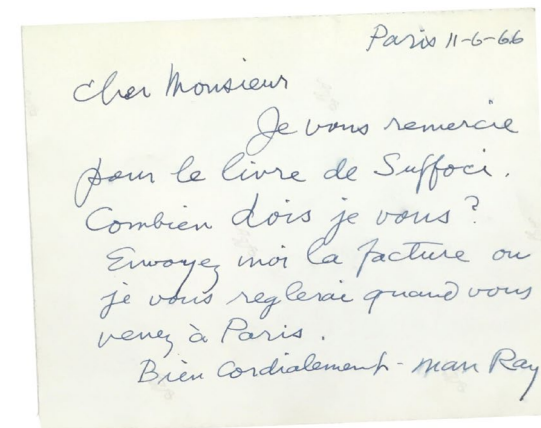 Paris 11-6-66
Cher Monsieur
Je vous remercie
pour le livre de Suffoci.
Combien dois je vous?
Envoyez moi la facture ou
je vous reglerai quand vous
venez à Paris.
Bien Cordialement - Man Ray